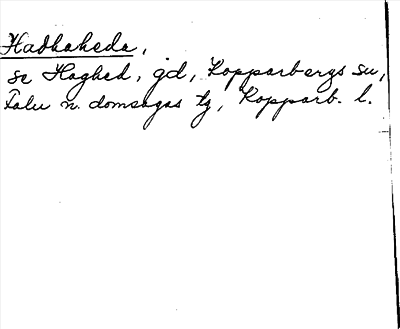 Hadhakeda,
se Haghed, gd, Kopparbergs sn,
Falu n. domsagas tg, Kopparb. l.